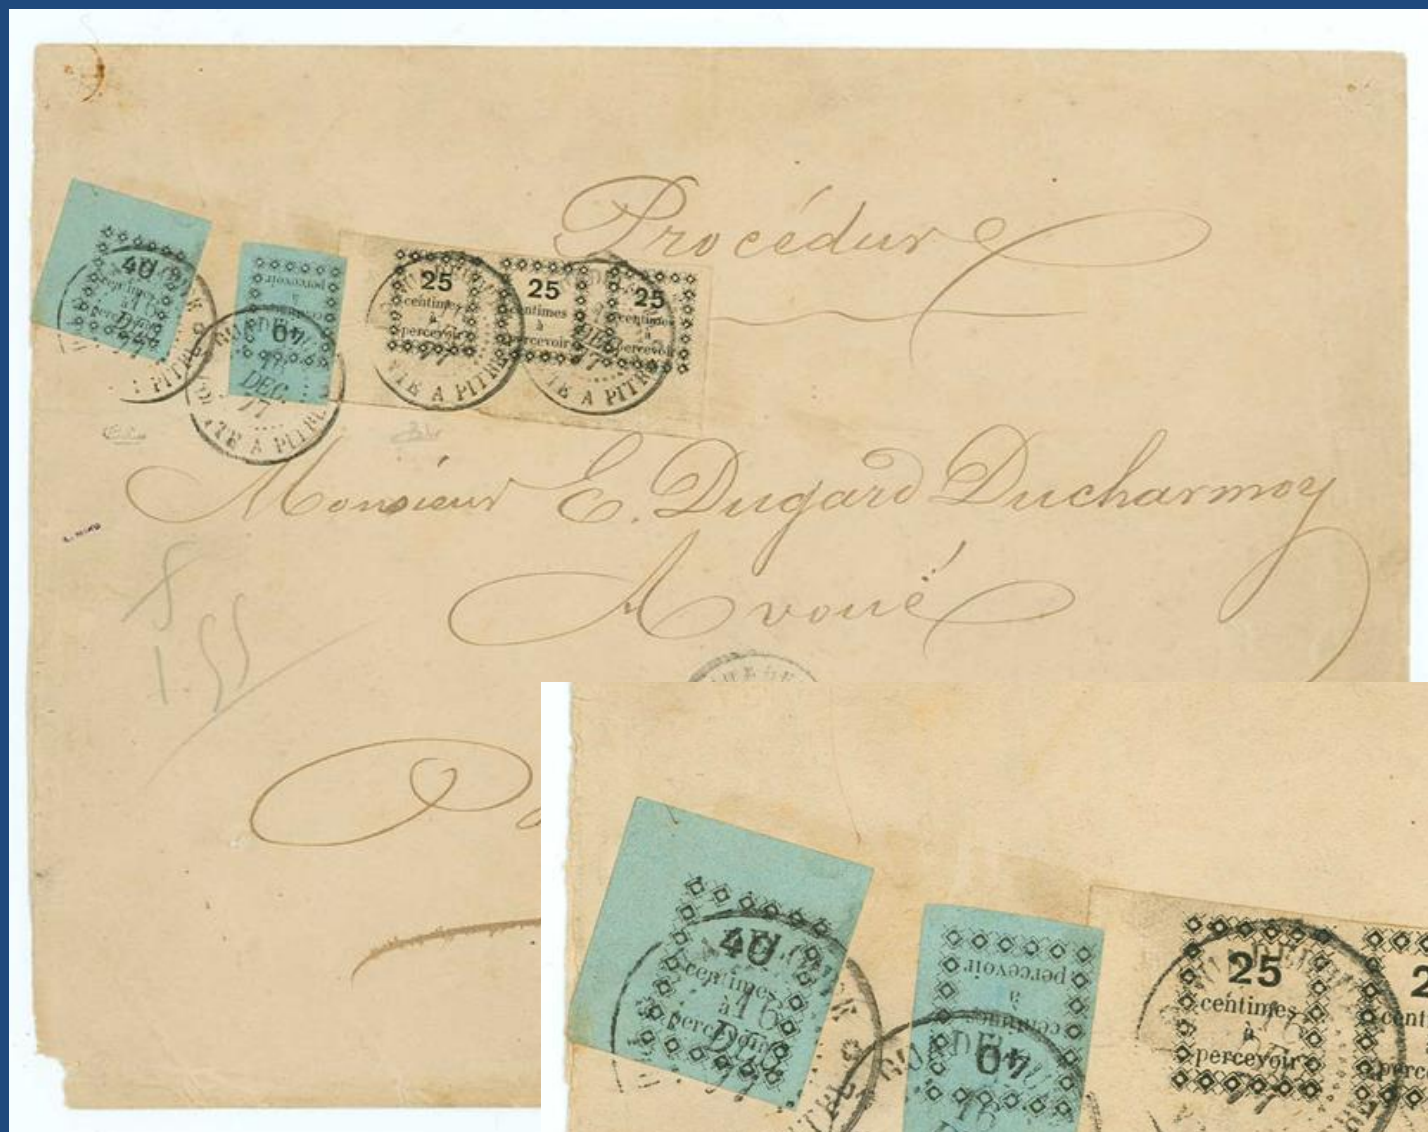 Procédure
40
centimes
à
percevoir
40
centimes
à
percevoir
25
centimes
à
percevoir
25
centimes
à
percevoir
25
centimes
à
percevoir
GUADELOUPE
16
DEC
77
POINTE A PITRE
Monsieur E. Dugard Ducharmoy
Avoué
1 55
40
centimes
à
percevoir
16
40
centimes
à
percevoir
16
25
centimes
à
percevoir
77